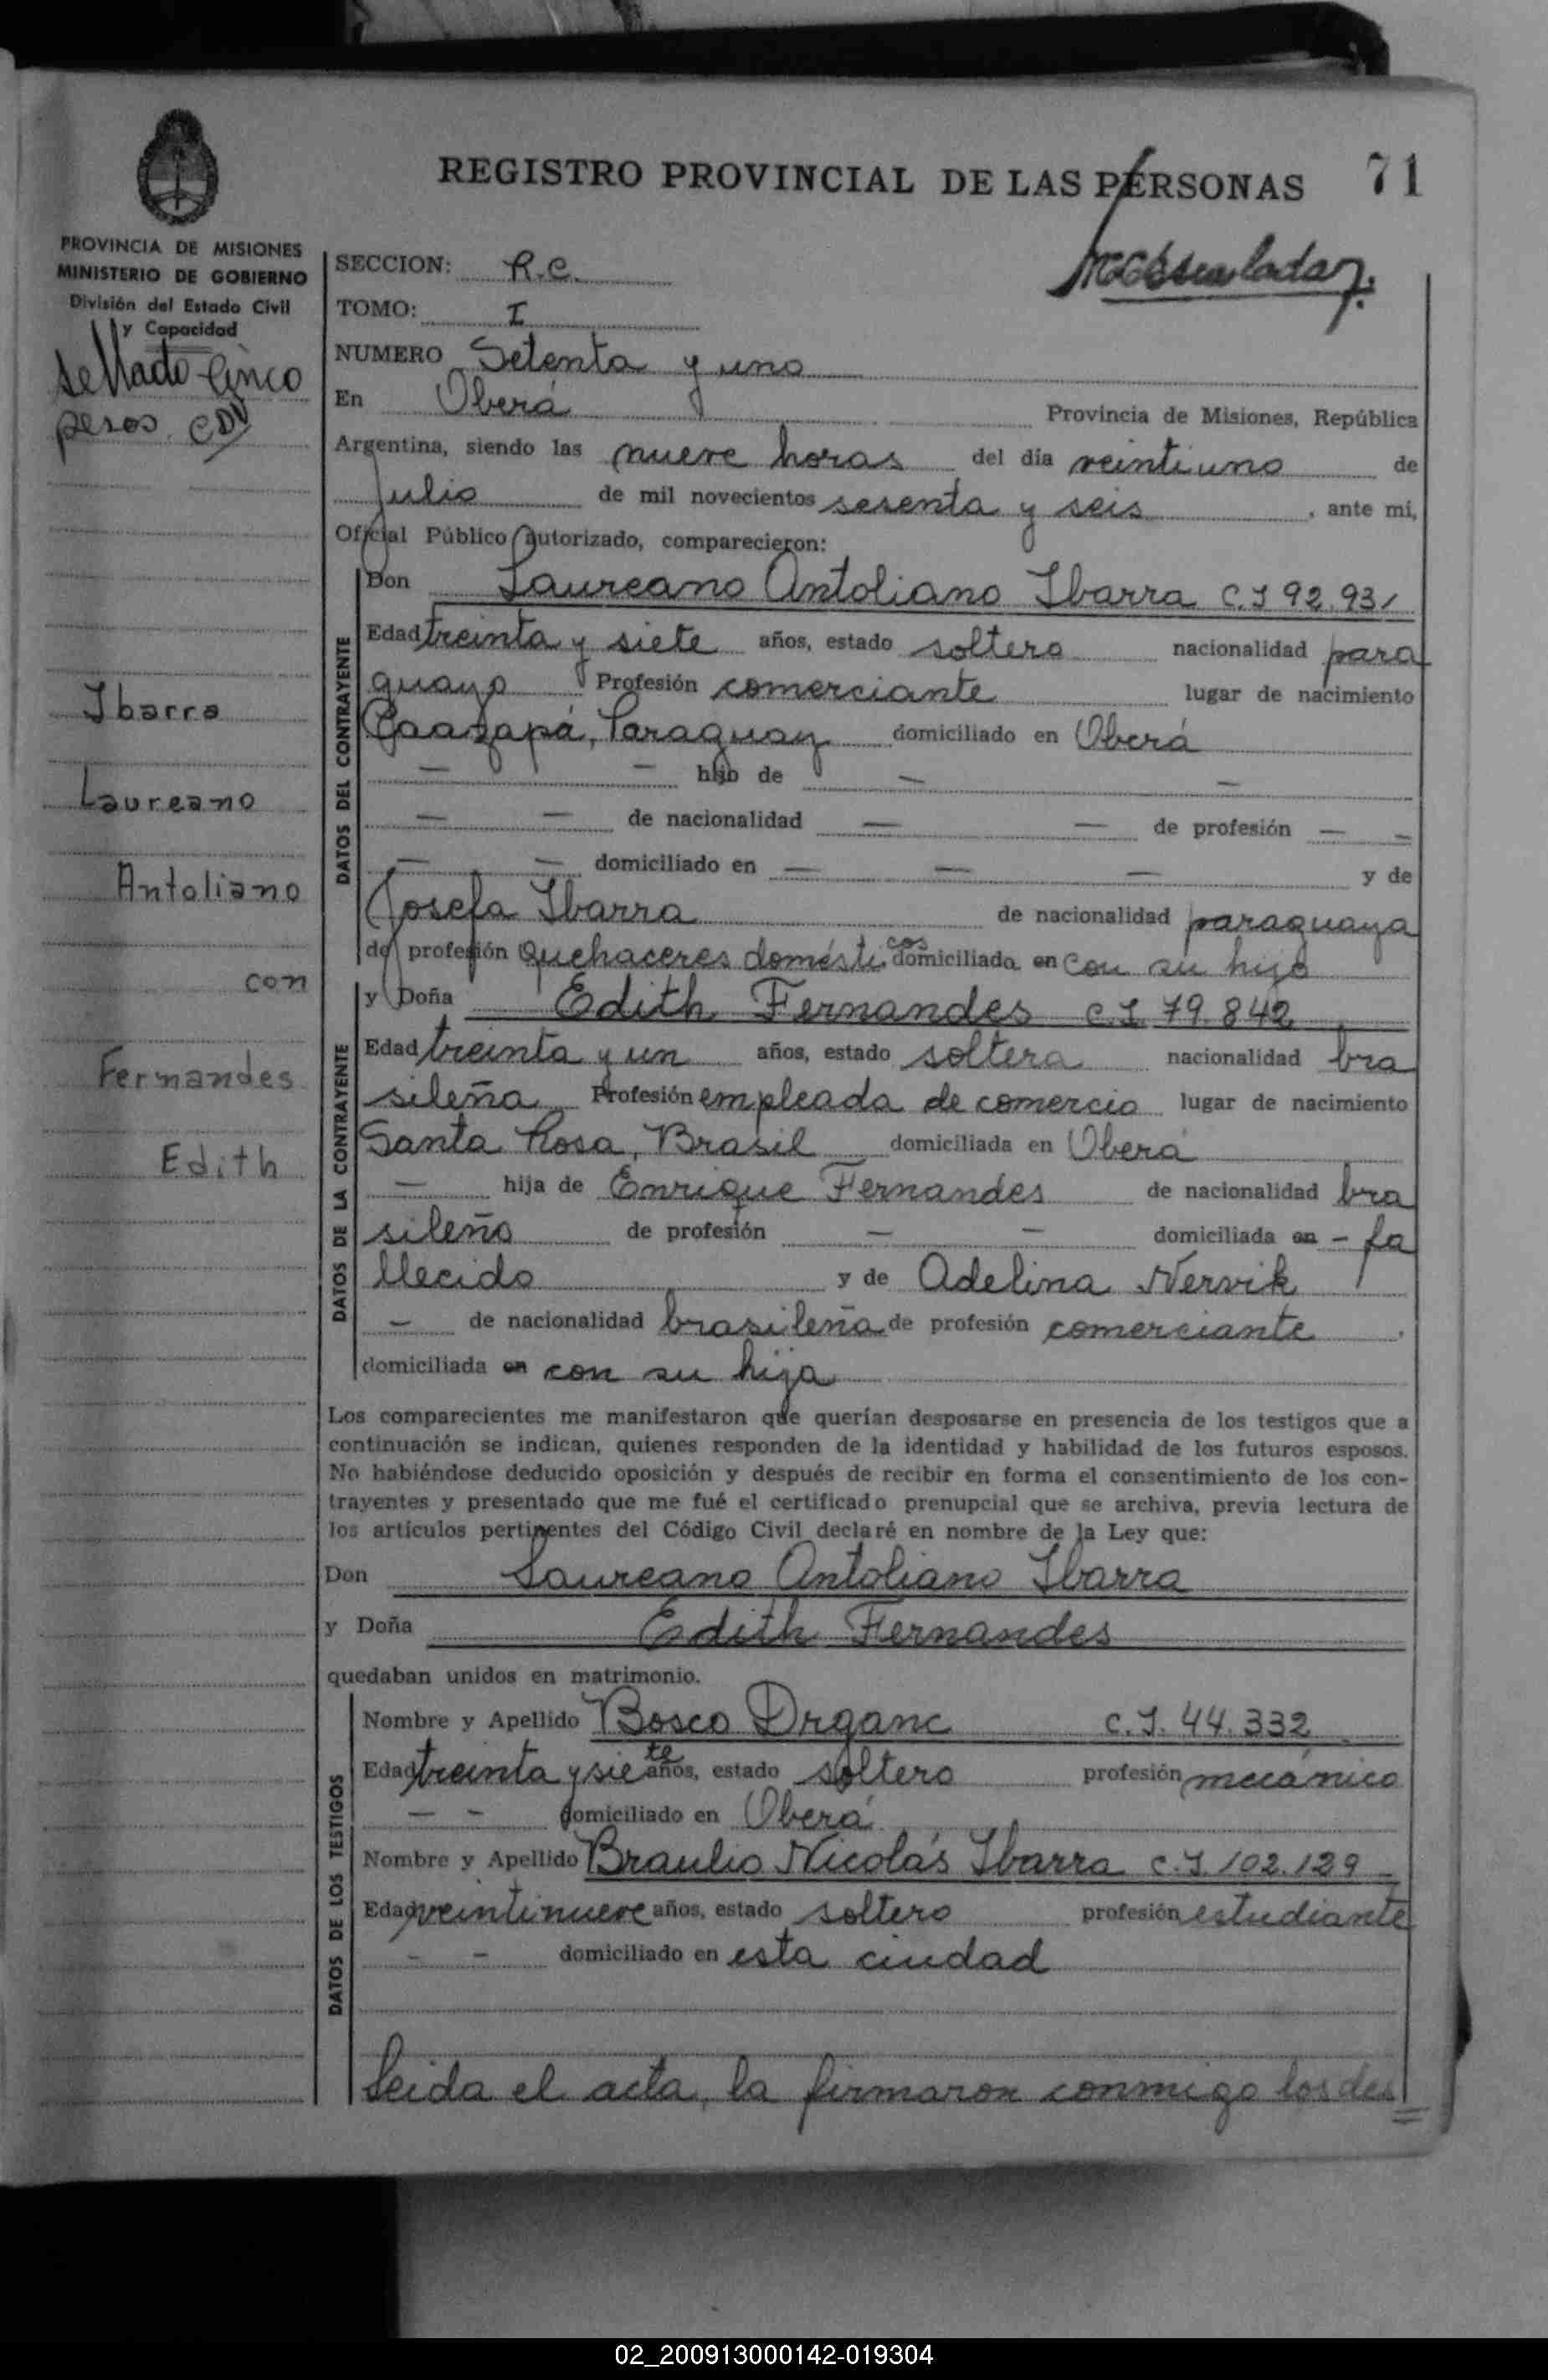 REGISTRO PROVINCIAL DE LAS PERSONAS 71
PROVINCIA DE MISIONES
MINISTERIO DE GOBIERNO
División del Estado Civil
y Capacidad
Sellado Cinco
pesos. CDV
Ibarra
Laureano
Antoliano
con
Fernandes
Edith
SECCION: R.C.
TOMO: I
NUMERO Setenta y uno
En Oberá Provincia de Misiones, República
Argentina, siendo las nueve horas del día veintiuno de
julio de mil novecientos sesenta y seis, ante mí,
Oficial Público autorizado, comparecieron:
DATOS DEL CONTRAYENTE
Don Laureano Antoliano Ibarra C.I 92.931
Edad treinta y siete años, estado soltero nacionalidad para
guayo Profesión comerciante lugar de nacimiento
Caazapá, Paraguay domiciliado en Oberá
— — hijo de — —
— — de nacionalidad — — de profesión — —
— — domiciliado en — — — y de
Josefa Ibarra de nacionalidad paraguaya
de profesión quehaceres domésticos domiciliada en con su hijo
DATOS DE LA CONTRAYENTE
y Doña Edith Fernandes C.I. 79.842
Edad treinta y un años, estado soltera nacionalidad bra
sileña Profesión empleada de comercio lugar de nacimiento
Santa Rosa, Brasil domiciliada en Oberá
— hija de Enrique Fernandes de nacionalidad bra
sileño de profesión — — domiciliada en - fa
llecido y de Adelina Nervik
— de nacionalidad brasileña de profesión comerciante.
domiciliada en con su hija
Los comparecientes me manifestaron que querían desposarse en presencia de los testigos que a
continuación se indican, quienes responden de la identidad y habilidad de los futuros esposos.
No habiéndose deducido oposición y después de recibir en forma el consentimiento de los con-
trayentes y presentado que me fué el certificado prenupcial que se archiva, previa lectura de
los artículos pertinentes del Código Civil declaré en nombre de la Ley que:
Don Laureano Antoliano Ibarra
y Doña Edith Fernandes
quedaban unidos en matrimonio.
DATOS DE LOS TESTIGOS
Nombre y Apellido Bosco Drganc C.I. 44.332
Edad treinta y siete años, estado soltero profesión mecánico
— - domiciliado en Oberá
Nombre y Apellido Braulio Nicolás Ibarra C.I. 102.129
Edad veintinueve años, estado soltero profesión estudiante
- - domiciliado en esta ciudad
Leída el acta, la firmaron conmigo los des
02_200913000142-019304